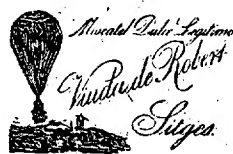 Moscatel Dulce Legítimo
Viuda de Robert
Sitges